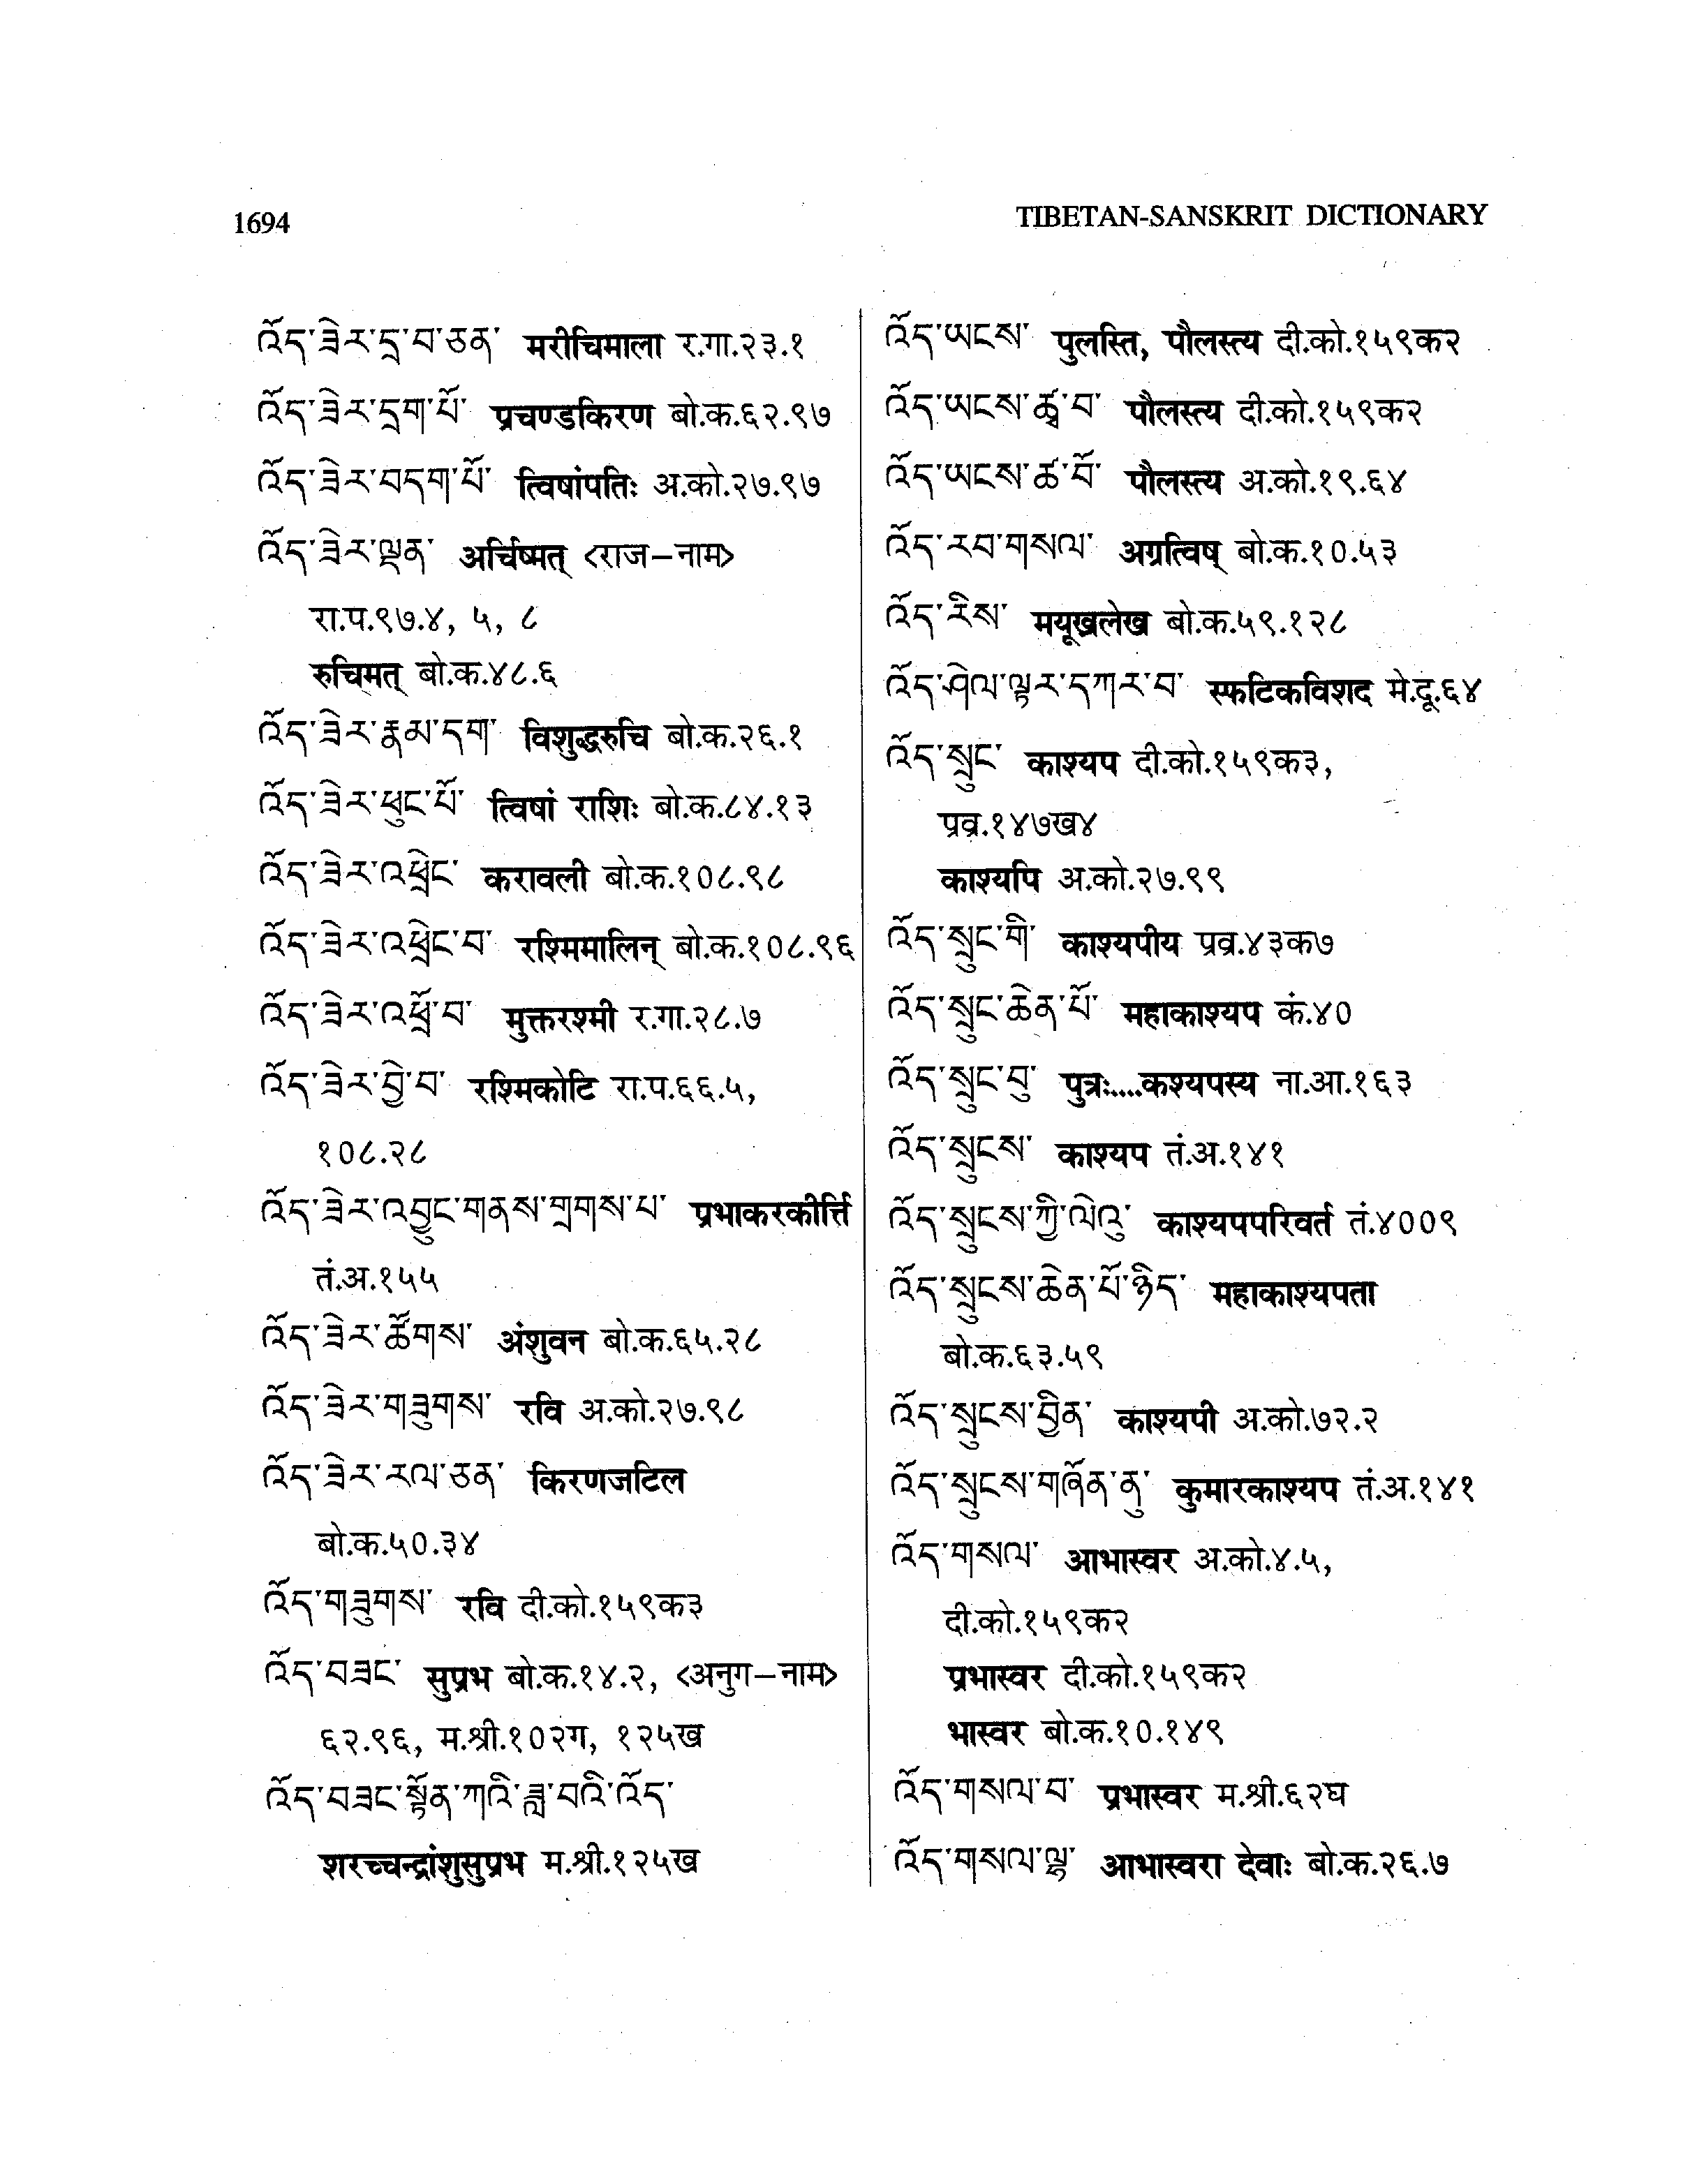 1694
TIBETAN-SANSKRIT DICTIONARY
འོད་ཟེར་དྲ་བ་ཅན་ मरीचिमाला र.गा.२३.१
འོད་ཟེར་དྲག་པོ་ प्रचण्डकिरण बो.क.६२.९७
འོད་ཟེར་བདག་པོ་ त्विषांपतिः अ.को.२७.९७
འོད་ཟེར་ལྡན་ अर्चिष्मत् <राज–नाम>
रा.प.९७.४, ५, ८
रुचिमत् बो.क.४८.६
འོད་ཟེར་རྣམ་དག་ विशुद्धरुचि बो.क.२६.१
འོད་ཟེར་ཕུང་པོ་ त्विषां राशिः बो.क.८४.१३
འོད་ཟེར་འཕྲེང་ करावली बो.क.१०८.९८
འོད་ཟེར་འཕྲེང་བ་ रश्मिमालिन् बो.क.१०८.९६
འོད་ཟེར་འཕྲོ་བ་ मुक्तरश्मी र.गा.२८.७
འོད་ཟེར་བྱེ་བ་ रश्मिकोटि रा.प.६६.५,
१०८.२८
འོད་ཟེར་འབྱུང་གནས་གྲགས་པ་ प्रभाकरकीर्त्ति
तं.अ.१५५
འོད་ཟེར་ཚོགས་ अंशुवन बो.क.६५.२८
འོད་ཟེར་གཟུགས་ रवि अ.को.२७.९८
འོད་ཟེར་རལ་ཅན་ किरणजटिल
बो.क.५०.३४
འོད་གཟུགས་ रवि दी.को.१५९क३
འོད་བཟང་ सुप्रभ बो.क.१४.२, <अनुग–नाम>
६२.९६, म.श्री.१०२ग, १२५ख
འོད་བཟང་སྟོན་ཀའི་ཟླ་བའི་འོད་
शरच्चन्द्रांशुसुप्रभ म.श्री.१२५ख
འོད་ཡངས་ पुलस्ति, पौलस्त्य दी.को.१५९क२
འོད་ཡངས་ཚྭ་བ་ पौलस्त्य दी.को.१५९क२
འོད་ཡངས་ཚ་བོ་ पौलस्त्य अ.को.१९.६४
འོད་རབ་གསལ་ अग्रत्विष् बो.क.१०.५३
འོད་རིས་ मयूखलेख बो.क.५९.१२८
འོད་ཤེལ་ལྟར་དཀར་བ་ स्फटिकविशद मे.दू.६४
འོད་སྲུང་ काश्यप दी.को.१५९क३,
प्रव्र.१४७ख४
काश्यपि अ.को.२७.९९
འོད་སྲུང་གི་ काश्यपीय प्रव्र.४३क७
འོད་སྲུང་ཆེན་པོ་ महाकाश्यप कं.४०
འོད་སྲུང་བུ་ पुत्रः....कश्यपस्य ना.आ.१६३
འོད་སྲུངས་ काश्यप तं.अ.१४१
འོད་སྲུངས་ཀྱི་ལེའུ་ काश्यपपरिवर्त तं.४००९
འོད་སྲུངས་ཆེན་པོ་ཉིད་ महाकाश्यपता
बो.क.६३.५९
འོད་སྲུངས་བྱིན་ काश्यपी अ.को.७२.२
འོད་སྲུངས་གཞོན་ནུ་ कुमारकाश्यप तं.अ.१४१
འོད་གསལ་ आभास्वर अ.को.४.५,
दी.को.१५९क२
प्रभास्वर दी.को.१५९क२
भास्वर बो.क.१०.१४९
འོད་གསལ་བ་ प्रभास्वर म.श्री.६२घ
འོད་གསལ་ལྷ་ आभास्वरा देवाः बो.क.२६.७